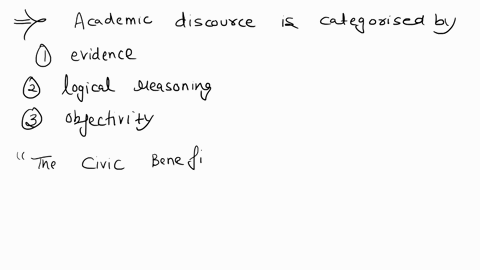 ⇒ Academic discource is categorised by
① evidence
② logical reasoning
③ objectivity
"The Civic Benefi